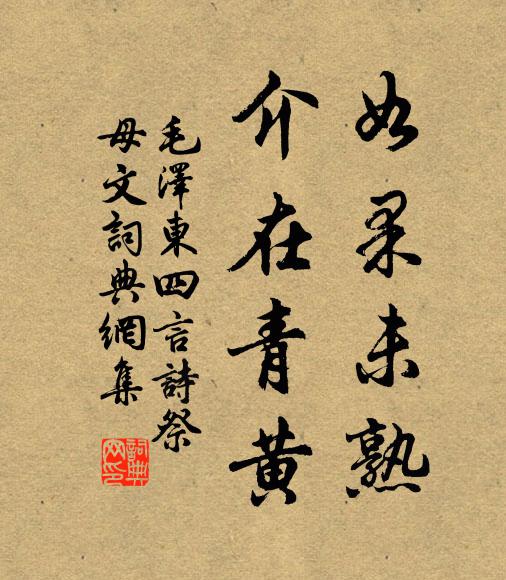 如果未熟
介在青黃
毛澤東四言詩祭
母文詞典網集
詞典
网印